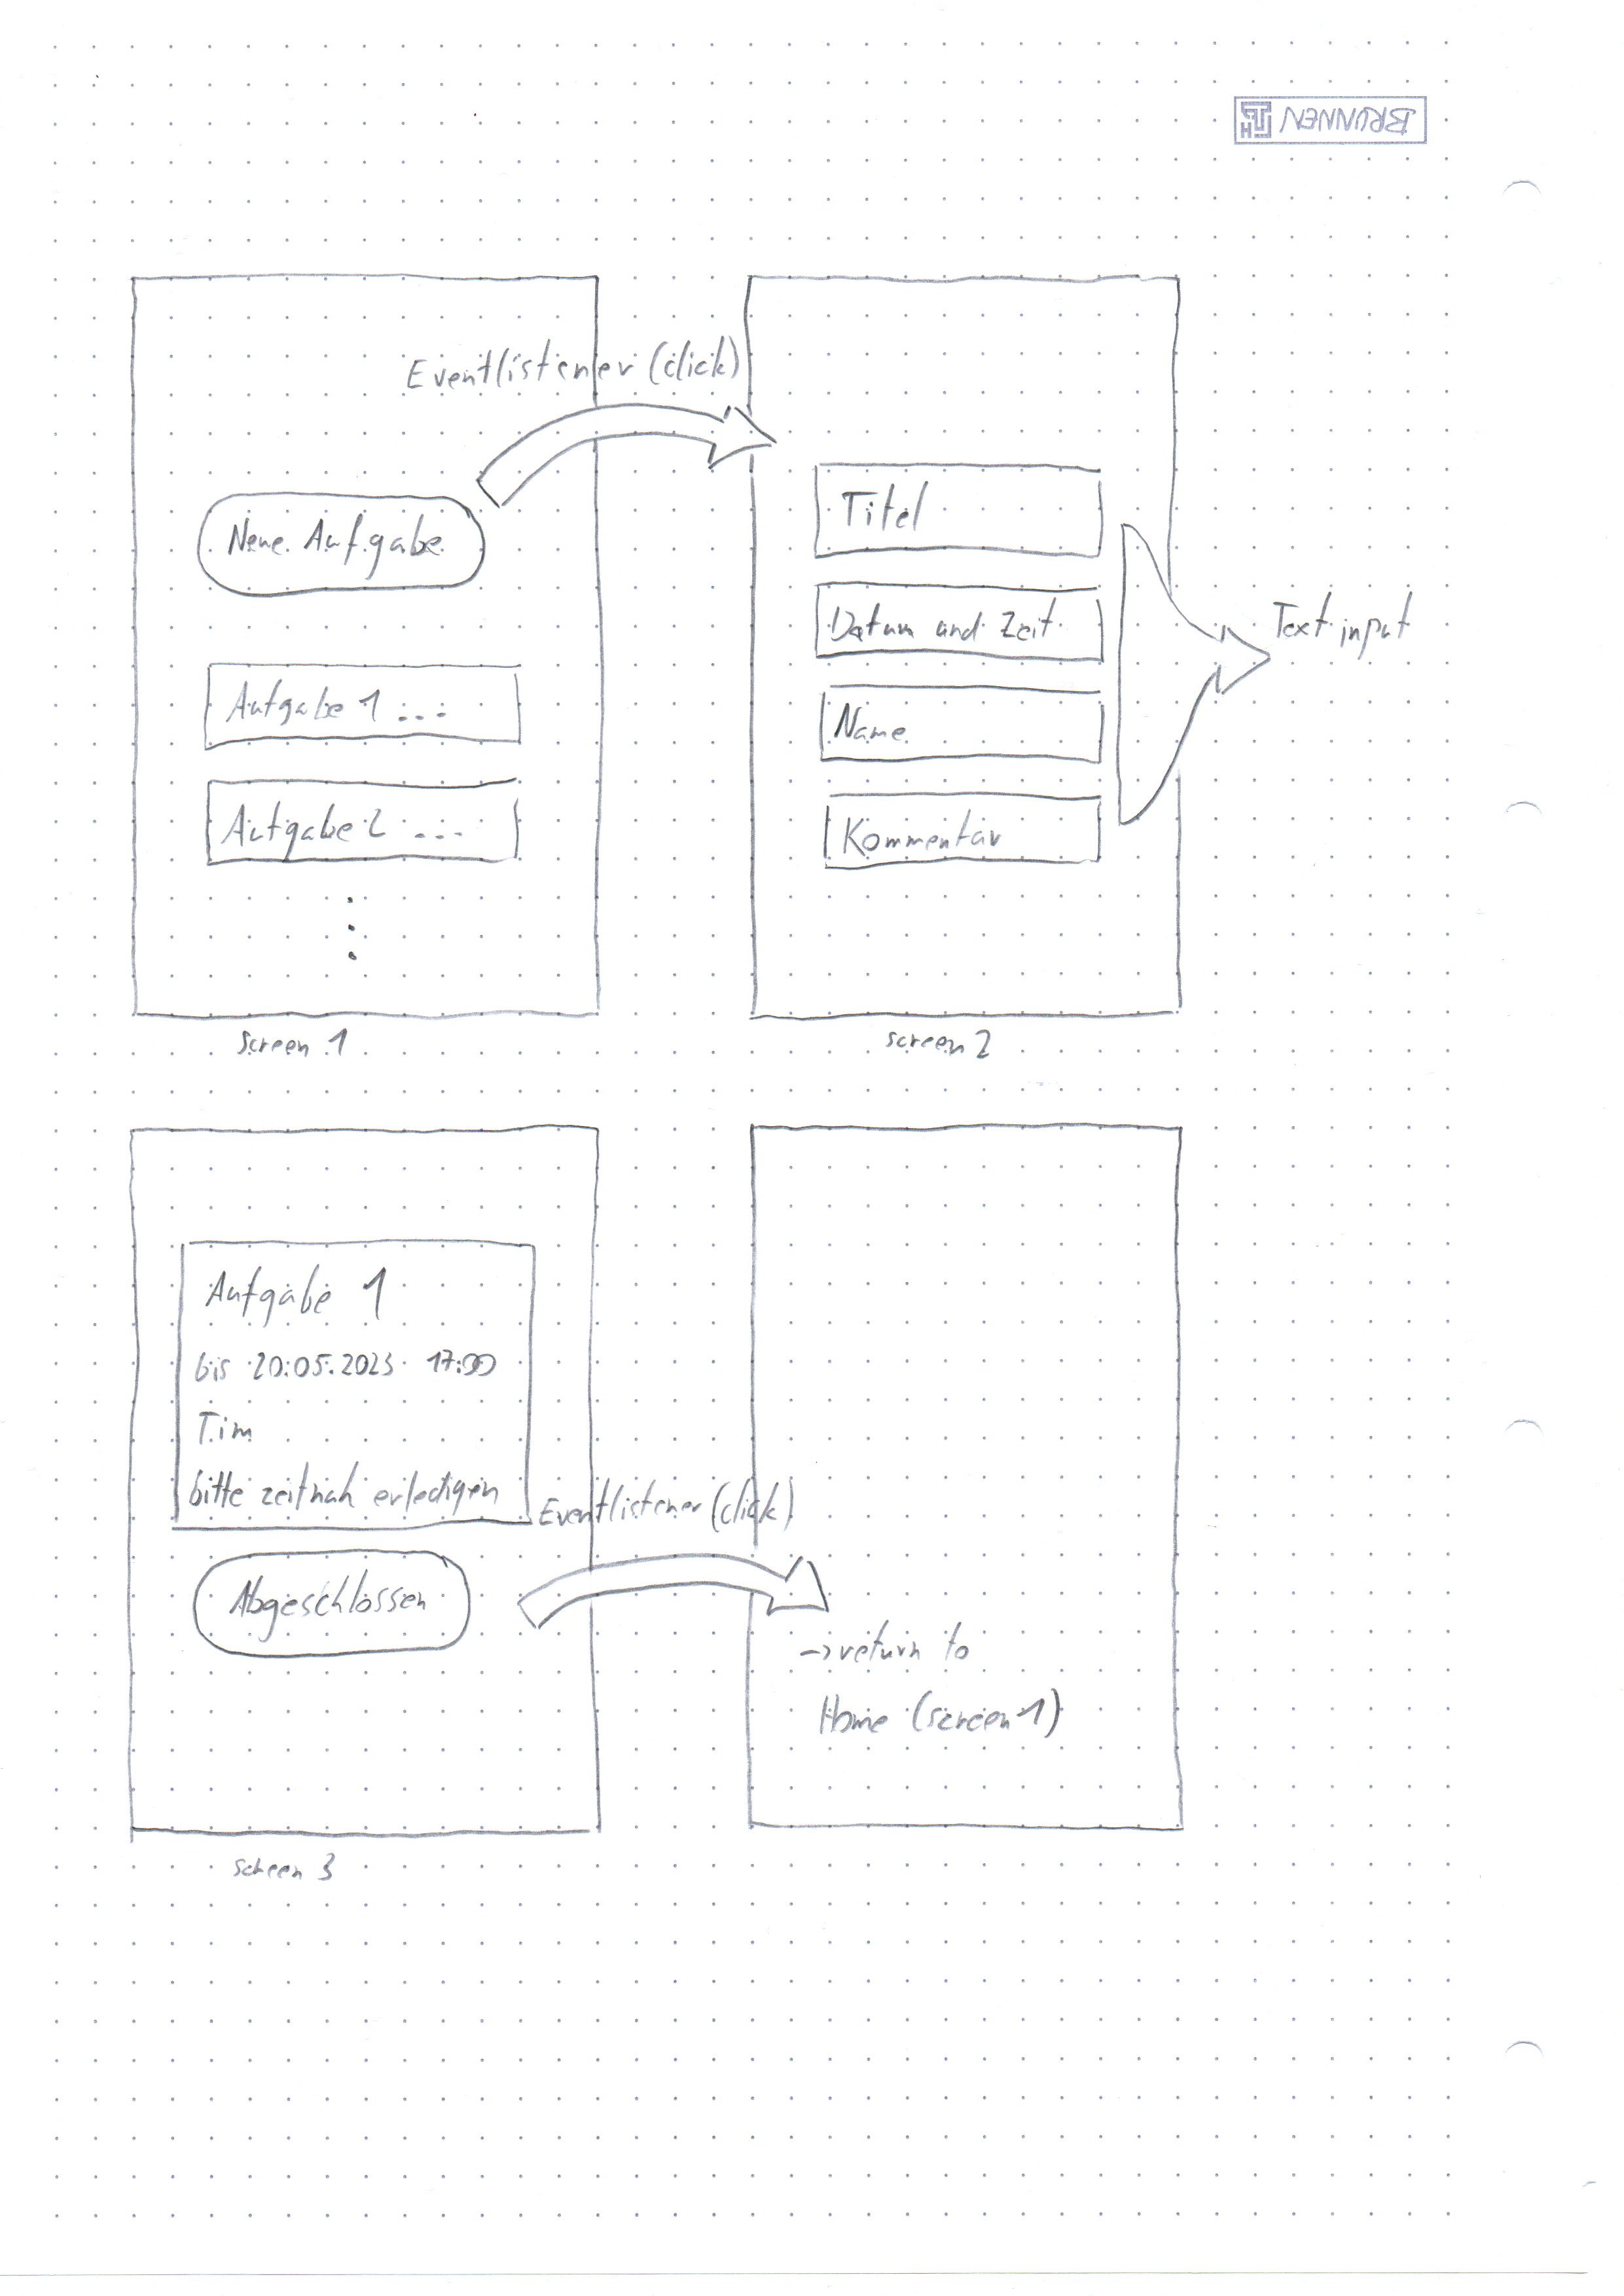 BRUNNEN
Eventlistener (click)
Neue Aufgabe
Aufgabe 1 ...
Aufgabe 2 ...
screen 1
Titel
Datum und Zeit
Name
Kommentar
Text input
screen 2
Aufgabe 1
bis 20.05.2023 17:00
Tim
bitte zeitnah erledigen
Eventlistener (click)
Abgeschlossen
screen 3
-> return to
Home (screen 1)